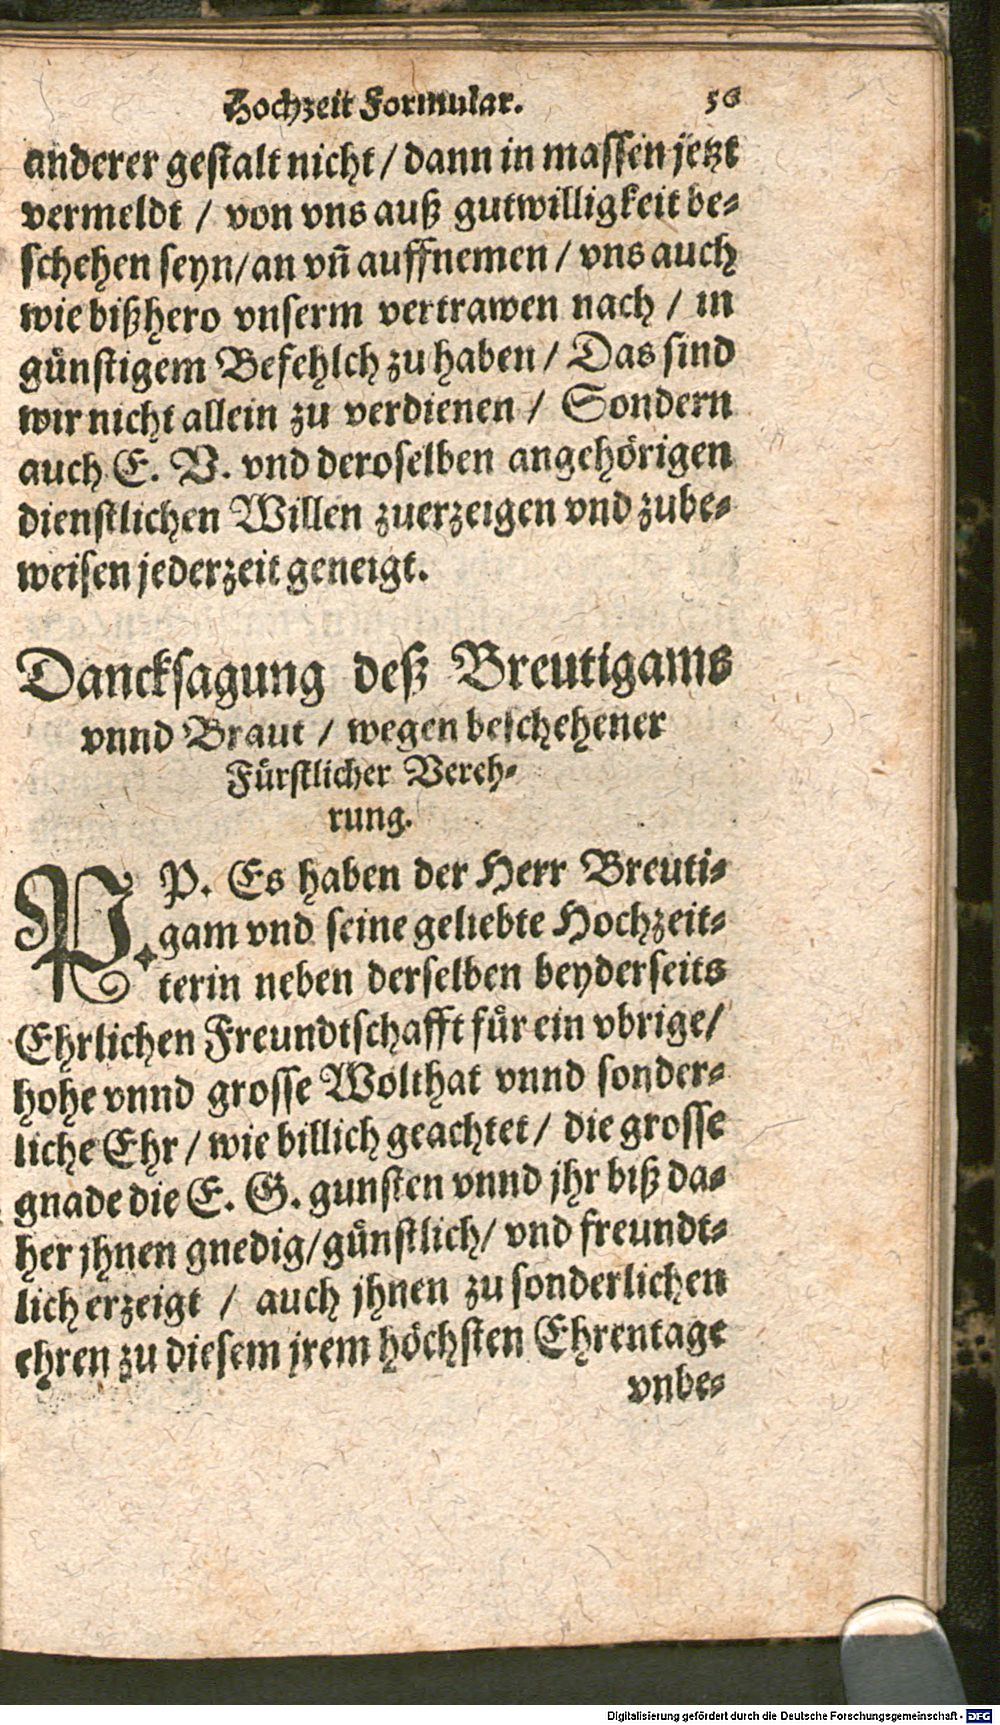 Hochzeit Formular. 56
anderer gestalt nicht / dann in massen jetzt
vermeldt / von vns auß gutwilligkeit be-
schehen seyn/an vñ auffnemen / vns auch
wie bißhero vnserm vertrawen nach / in
günstigem Befehlch zu haben / Das sind
wir nicht allein zu verdienen / Sondern
auch E. V. vnd deroselben angehörigen
dienstlichen Willen zuerzeigen vnd zube-
weisen jederzeit geneigt.
Dancksagung deß Breutigams
vnnd Braut / wegen beschehener
Fürstlicher Vereh-
rung.
P. P. Es haben der Herr Breuti-
gam vnd seine geliebte Hochzeit-
terin neben derselben beyderseits
Ehrlichen Freundtschafft für ein vbrige/
hohe vnnd grosse Wolthat vnnd sonder-
liche Ehr / wie billich geachtet / die grosse
gnade die E. G. gunsten vnnd jhr biß da-
her jhnen gnedig/günstlich/ vnd freundt-
lich erzeigt / auch jhnen zu sonderlichen
ehren zu diesem jrem höchsten Ehrentage
vnbe-
Digitalisierung gefördert durch die Deutsche Forschungsgemeinschaft - DFG